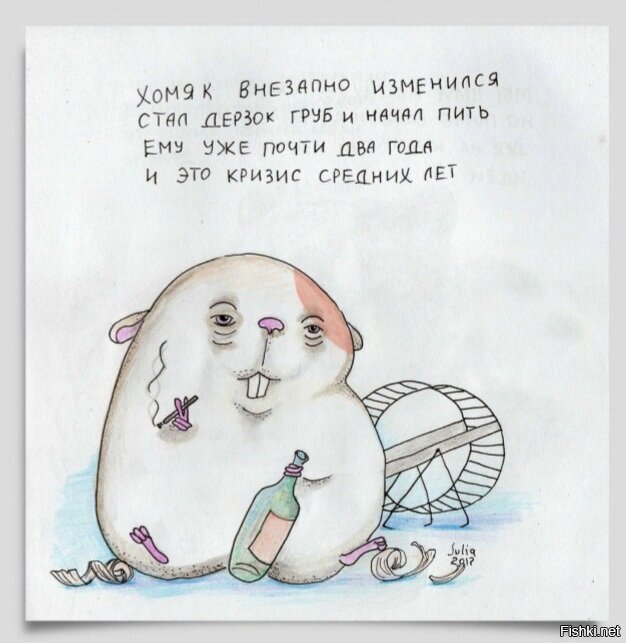 ХОМЯК ВНЕЗАПНО ИЗМЕНИЛСЯ
СТАЛ ДЕРЗОК ГРУБ И НАЧАЛ ПИТЬ
ЕМУ УЖЕ ПОЧТИ ДВА ГОДА
И ЭТО КРИЗИС СРЕДНИХ ЛЕТ
Julia
2017
Fishki.net